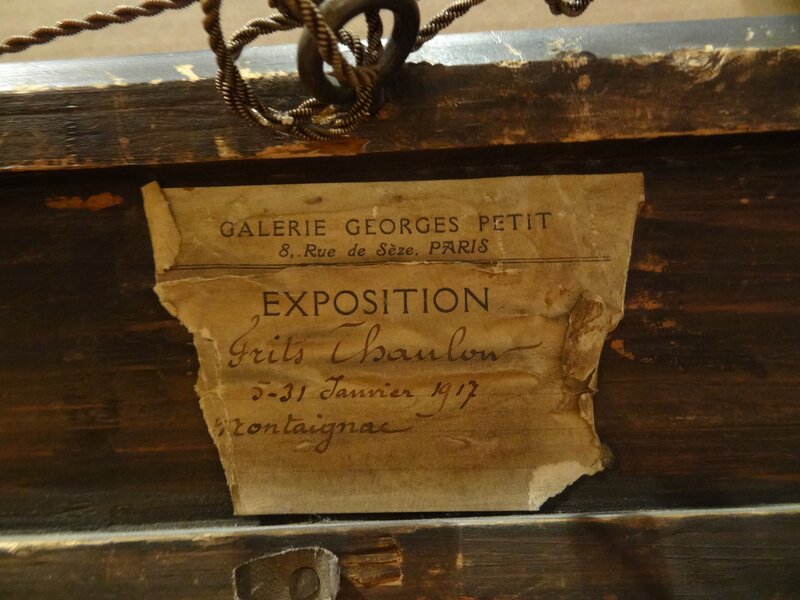 GALERIE GEORGES PETIT
8, Rue de Sèze, PARIS
EXPOSITION
Frits Thaulow
5-31 Janvier 1917
Montaignac